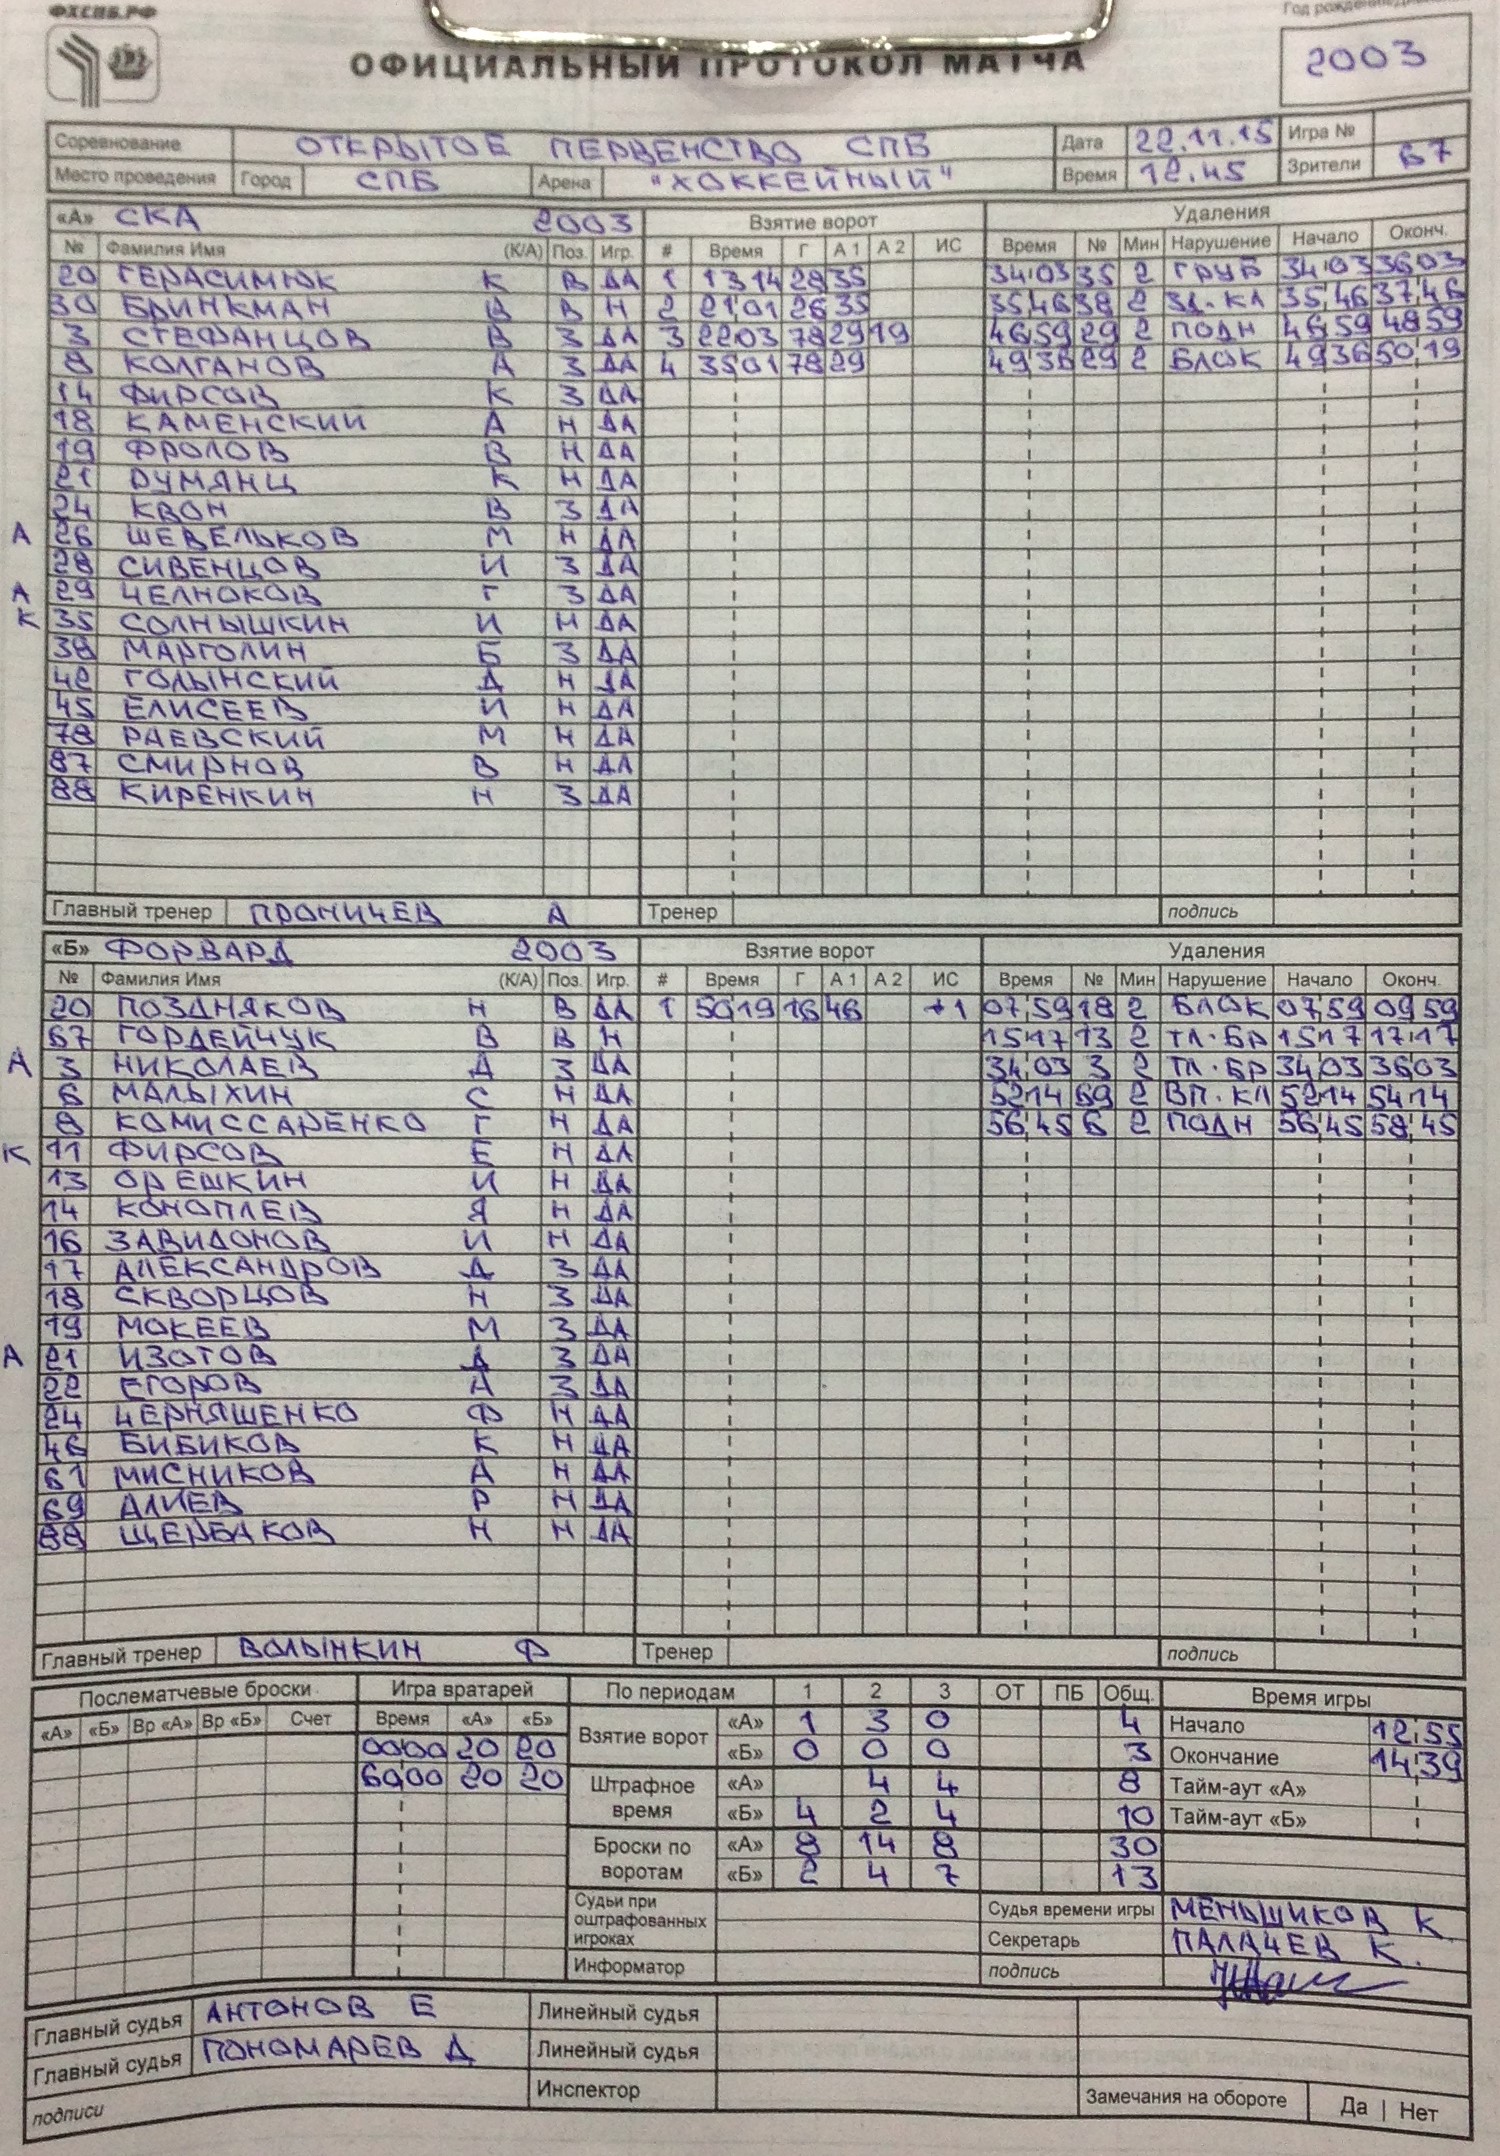 ФХСПБ.РФ
ОФИЦИАЛЬНЫЙ ПРОТОКОЛ МАТЧА
Год рождения
2003
Соревнование ОТКРЫТОЕ ПЕРВЕНСТВО СПБ Дата 22.11.15 Игра №
Место проведения Город СПБ Арена "ХОККЕЙНЫЙ" Время 12.45 Зрители 67
«А» СКА 2003 Взятие ворот Удаления
№ Фамилия Имя (К/А) Поз. Игр. # Время Г А 1 А 2 ИС Время № Мин Нарушение Начало Оконч.
20 ГЕРАСИМЮК К В ДА 1 13 14 28 35 34 03 35 2 ГРУБ 34 03 36 03
30 БРИНКМАН В В Н 2 21 01 26 35 35 46 38 2 ЗД.КЛ 35 46 37 46
3 СТЕФАНЦОВ В З ДА 3 22 03 78 29 19 46 59 29 2 ПОДН 46 59 48 59
8 КОЛГАНОВ А З ДА 4 35 01 78 29 49 36 29 2 БЛОК 49 36 50 19
14 ФИРСОВ К З ДА
18 КАМЕНСКИЙ А Н ДА
19 ФРОЛОВ В Н ДА
21 РУМЯНЦ К Н ДА
24 КВОН В З ДА
А 26 ШЕВЕЛЬКОВ М Н ДА
28 СИВЕНЦОВ И З ДА
А 29 ЧЕЛНОКОВ Г З ДА
К 35 СОЛНЫШКИН И Н ДА
38 МАРГОЛИН Б З ДА
42 ГОЛЫНСКИЙ Д Н ДА
45 ЕЛИСЕЕВ И Н ДА
78 РАЕВСКИЙ М Н ДА
87 СМИРНОВ В Н ДА
88 КИРЕНКИН Н З ДА
Главный тренер ПРОНИЧЕВ А Тренер подпись
«Б» ФОРВАРД 2003 Взятие ворот Удаления
№ Фамилия Имя (К/А) Поз. Игр. # Время Г А 1 А 2 ИС Время № Мин Нарушение Начало Оконч.
20 ПОЗДНЯКОВ Н В ДА 1 50 19 16 46 +1 07 59 18 2 БЛОК 07 59 09 59
67 ГОРДЕЙЧУК В В Н 15 17 13 2 ТЛ.БР 15 17 17 17
А 3 НИКОЛАЕВ Д З ДА 34 03 3 2 ТЛ.БР 34 03 36 03
6 МАЛЫХИН С Н ДА 52 14 69 2 ВП.КЛ 52 14 54 14
8 КОМИССАРЕНКО Г Н ДА 56 45 6 2 ПОДН 56 45 58 45
К 11 ФИРСОВ Е Н ДА
13 ОРЕШКИН И Н ДА
14 КОНОПЛЕВ Я Н ДА
16 ЗАВИДОНОВ И Н ДА
17 АЛЕКСАНДРОВ Д З ДА
18 СКВОРЦОВ Н З ДА
19 МОКЕЕВ М З ДА
А 21 ИЗОТОВ Д З ДА
22 ЕГОРОВ А З ДА
24 ЧЕРНЯШЕНКО Ф Н ДА
46 БИБИКОВ К Н ДА
61 МИСНИКОВ А Н ДА
69 АЛИЕВ Р Н ДА
88 ЩЕРБАКОВ Н Н ДА
Главный тренер ВОЛЫНКИН Ф Тренер подпись
Послематчевые броски Игра вратарей По периодам 1 2 3 ОТ ПБ Общ. Время игры
«А» «Б» Вр «А» Вр «Б» Счет Время «А» «Б» Взятие ворот «А» 1 3 0 4 Начало 12 55
00 00 20 20 «Б» 0 0 0 3 Окончание 14 39
60 00 20 20 Штрафное время «А» 4 4 8 Тайм-аут «А»
«Б» 4 2 4 10 Тайм-аут «Б»
Броски по воротам «А» 8 14 8 30
«Б» 2 4 7 13
Судьи при оштрафованных игроках Судья времени игры МЕНЬШИКОВ К.
Секретарь ПАЛАЧЕВ К.
Информатор подпись
Главный судья АНТОНОВ Е Линейный судья
Главный судья ПОНОМАРЕВ Д Линейный судья
подписи Инспектор Замечания на обороте Да | Нет